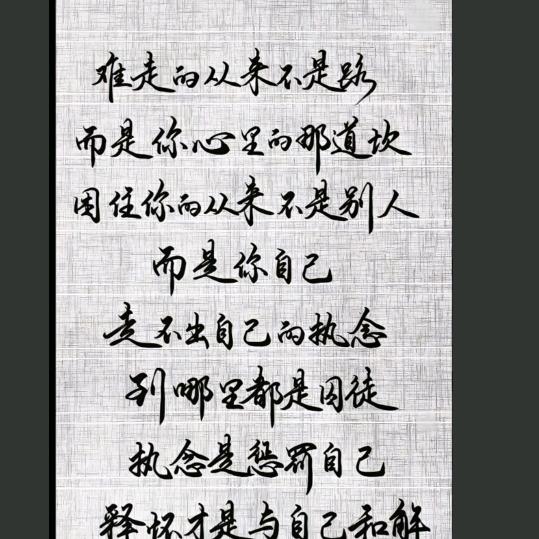 难走的从来不是路
而是你心里的那道坎
困住你的从来不是别人
而是你自己
走不出自己的执念
到哪里都是囚徒
执念是惩罚自己
释怀才是与自己和解